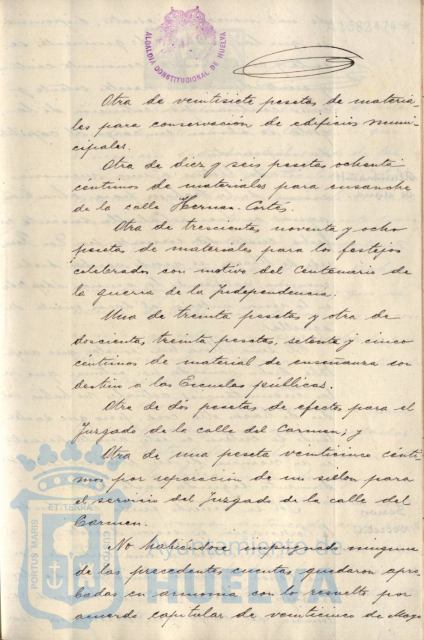 ALCALDÍA CONSTITUCIONAL DE HUELVA
Otra de veintisiete pesetas de materia-
les para conservación de edificios muni-
cipales.
Otra de diez y seis pesetas ochenta
céntimos de materiales para ensanche
de la calle Hernan-Cortés.
Otra de trescientas noventa y ocho
pesetas de materiales para los festejos
celebrados con motivo del Centenario de
la guerra de la Independencia.
Una de treinta pesetas y otra de
doscientas treinta pesetas, setenta y cinco
céntimos de material de enseñanza con
destino a las Escuelas públicas.
Otra de dos pesetas de efectos para el
Juzgado de la calle del Carmen; y
Otra de una peseta veinticinco cénti-
mos por reparación de un sillon para
el servicio del Juzgado de la calle del
Carmen.
No habiendose impugnado ninguna
de las precedentes cuentas, quedaron apro-
badas en armonia con lo resuelto por
acuerdo capitular de veinticinco de Mayo
PORTUS MARIS ET TERRÆ
Ayuntamiento de
HUELVA